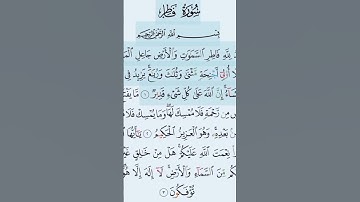 سُورَةُ فَاطِرٍ
بِسْمِ ٱللَّهِ ٱلرَّحْمَٰنِ ٱلرَّحِيمِ
دُ لِلَّهِ فَاطِرِ ٱلسَّمَٰوَٰتِ وَٱلْأَرْضِ جَاعِلِ ٱلْمَ
لًا أُو۟لِىٓ أَجْنِحَةٍ مَّثْنَىٰ وَثُلَٰثَ وَرُبَٰعَ ۚ يَزِيدُ فِى
شَآءُ ۚ إِنَّ ٱللَّهَ عَلَىٰ كُلِّ شَىْءٍ قَدِيرٌ ١
مِن رَّحْمَةٍ فَلَا مُمْسِكَ لَهَا ۖ وَمَا يُمْسِكْ فَلَا
مِنۢ بَعْدِهِۦ ۚ وَهُوَ ٱلْعَزِيزُ ٱلْحَكِيمُ ٢ يَٰٓأَيُّهَا
نِعْمَتَ ٱللَّهِ عَلَيْكُمْ ۚ هَلْ مِنْ خَٰلِقٍ غَيْ
كُم مِّنَ ٱلسَّمَآءِ وَٱلْأَرْضِ ۚ لَآ إِلَٰهَ إِلَّا هُوَ
تُؤْفَكُونَ ٣